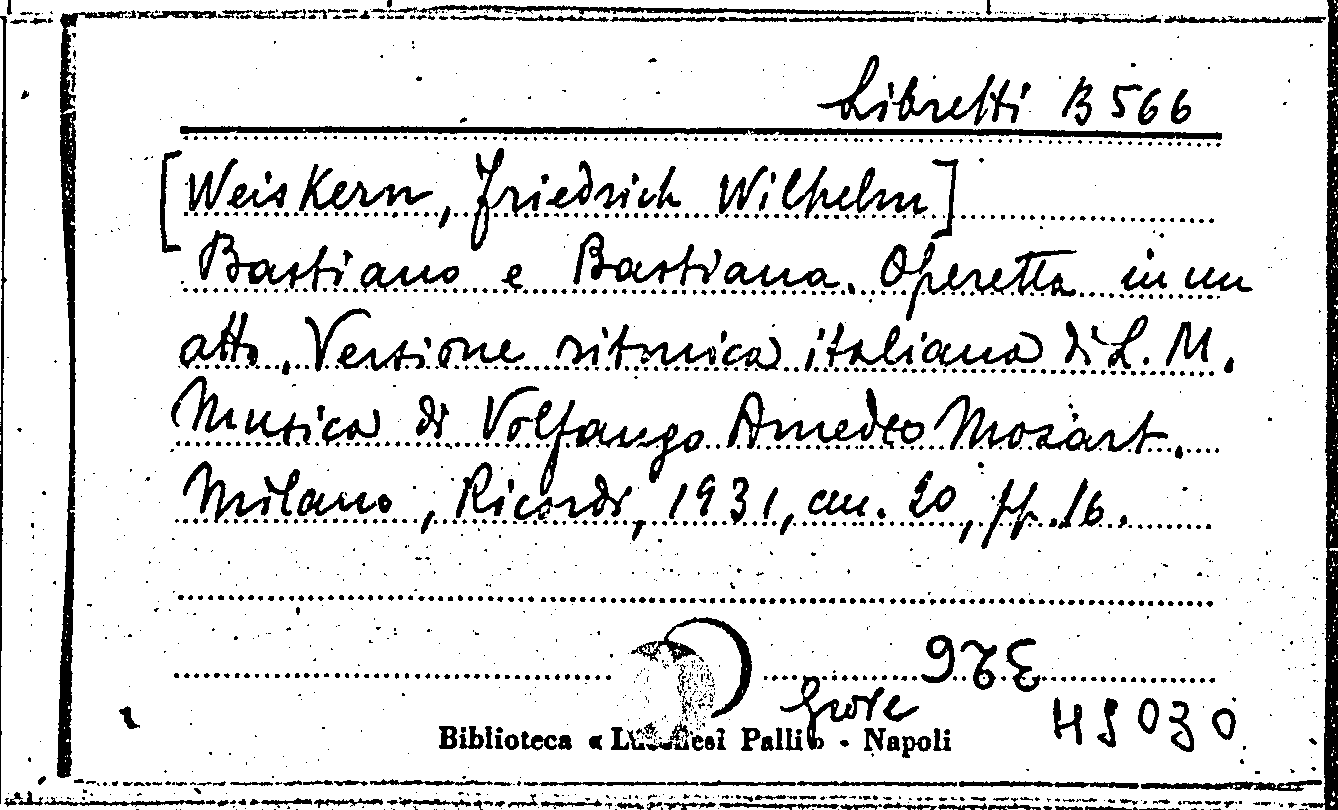 Libretti B 566
[Weiskern, Friedrich Wilhelm]
Bastiano e Bastiana. Operetta in un
atto. Versione ritmica italiana di L. M.
Musica di Volfango Amedeo Mozart.
Milano, Ricordi, 1931, cm. 20, pp. 16.
Biblioteca « Lucchesi Palli » - Napoli